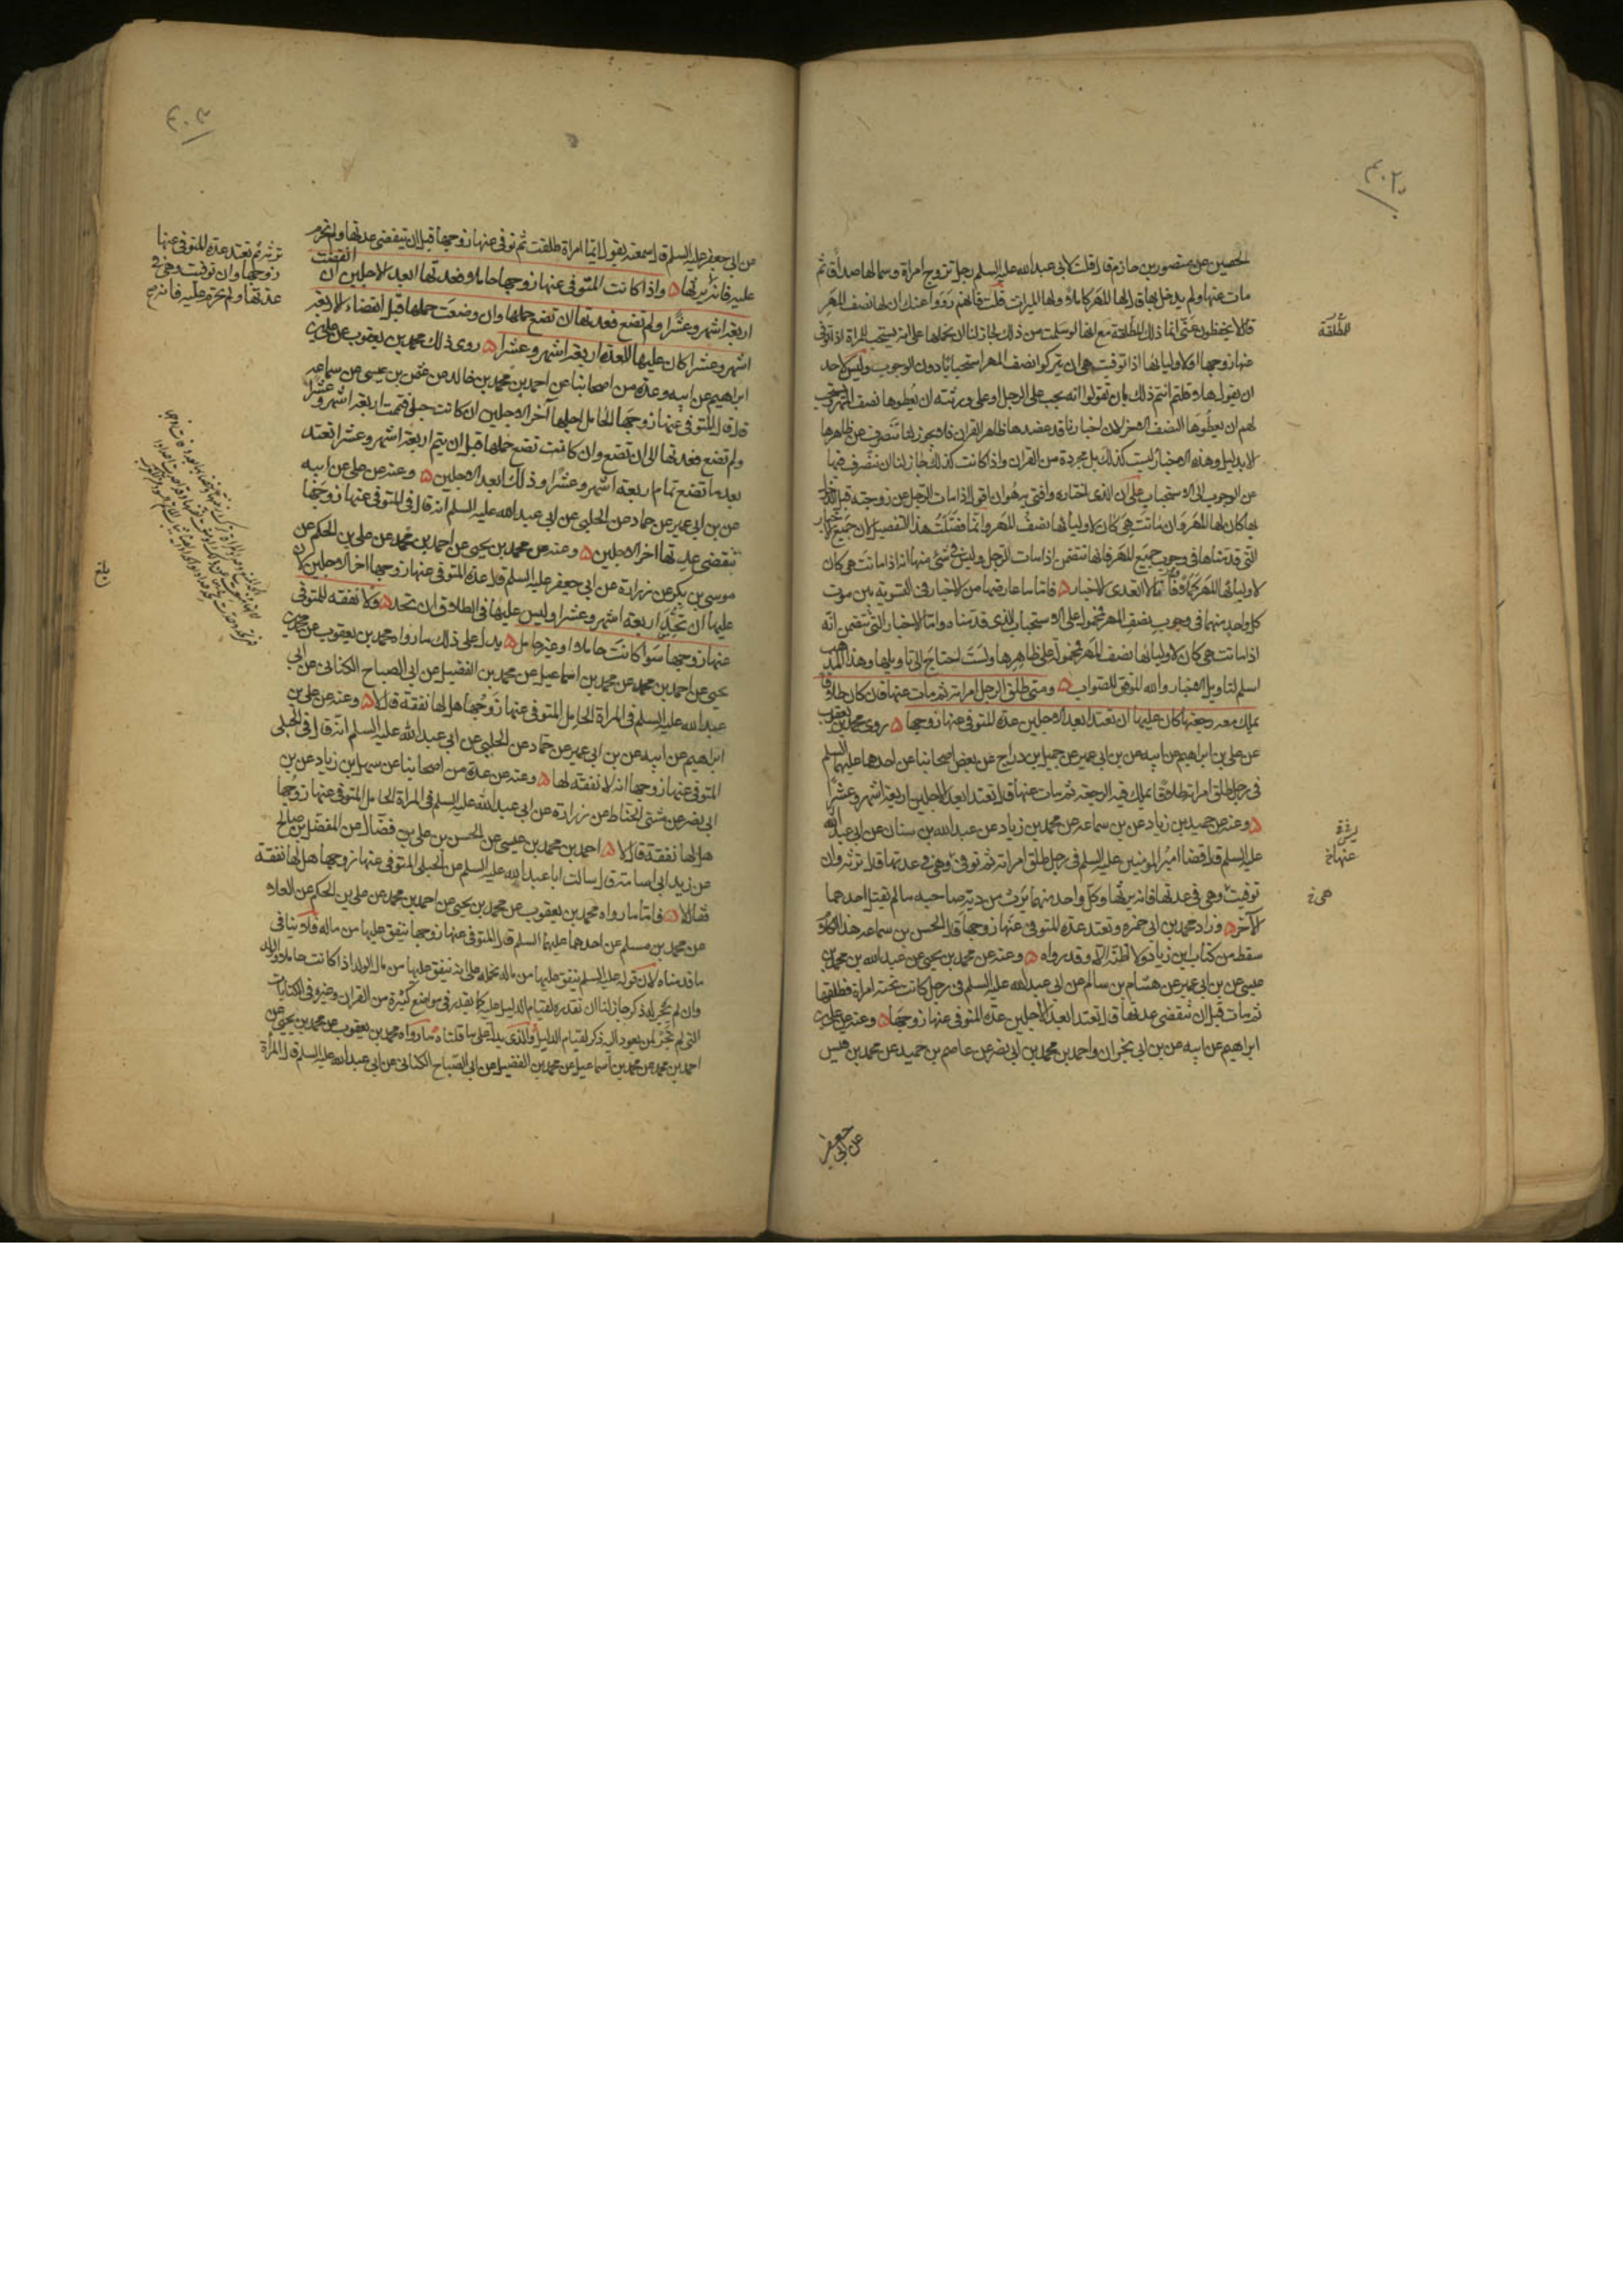 الحصين عن منصور بن حازم قال قلت لابي عبدالله عليه السلم رجل تزوج امراة وسما لها صداقا ثم
مات عنها ولم يدخل بها قال لها المهر كاملا ولها الميراث قلت فانهم رووا عنك ان لها نصف المهر
قال لا يحفظون عنى انما ذلك المطلقة مع انها لو سلمت من ذلك لجاز لنا ان نحملها على انه يستحب للمراة اذا توفى
عنها زوجها اولاوليائها اذا توفيت هى ان يتركوا نصف المهر استحبابا دون الوجوب وليس لاحد
ان يقول هلا قلتم انتم ذلك بان تقولوا انه يجب على الرجل او على ورثته ان يعطوها نصف المهر ويستحب
لهم ان يعطوها النصف الاخر لان اخبارنا قد عضدها ظاهر القران فلا يجوز لنا ننصرف عن ظاهرها
الا بدليل وهذه الاخبار ليست كذلك بل مجردة من القران واذا كانت كذلك جاز لنا ان نتصرف فيها
من الوجوب الى الاستحباب على ان الذى اختاره وافتى به هو ان اقول اذا مات الرجل عن زوجته قبل الدخول
بها كان لها المهر وان ماتت هى كان لاوليائها نصف المهر وانما فصلت هذا التفصيل لان جميع الاخبار
التى قدمناها فى وجوب جميع المهر فانها تتضمن اذا مات الرجل وليس فى شئ منها انه اذا ماتت هى كان
لاوليائها المهر كملا وانا لا اتعدى الاخبار فاما ما عارضها من الاخبار فى التسوية بين موت
كل واحد منهما فى وجوب نصف المهر فمحمول على الاستحباب الذى قدمناه واما الاخبار التى تتضمن انه
اذا ماتت هى كان لاوليائها نصف المهر فمحمولة على ظاهرها ولست احتاج الى تاويلها وهذا المذهب
اسلم لتاويل الاخبار والله الموفق للصواب ومتى طلق الرجل امراته ثم مات عنها فان كان طلاقا
يملك معه رجعتها كان عليها ان تعتد ابعد الاجلين عدة المتوفى عنها زوجها روى محمد بن يعقوب
عن على بن ابراهيم عن ابيه عن بن ابى عمير عن جميل بن دراج عن بعض اصحابنا عن احدهما عليهما السلم
فى رجل طلق امراته طلاقا يملك فيه الرجعة ثم مات عنها قال تعتد ابعد الاجلين اربعة اشهر وعشرا
وعنه عن حميد بن زياد عن بن سماعة عن محمد بن زياد عن عبدالله بن سنان عن ابى عبدالله
عليه السلم قال قضا امير المومنين عليه السلم فى رجل طلق امراته ثم توفى وهى فى عدتها قال ترثه وان
توفيت وهى فى عدتها فانه يرثها وكل واحد منهما يرث من دية صاحبه ما لم يقتل احدهما
الآخر وزاد محمد بن ابى حمزه وتعتد عدة المتوفى عنها زوجها قال الحسن بن سماعه هذا الكلام
سقط من كتاب ابن زياد ولا اظنه الا وقد رواه وعنه عن محمد بن يحيى عن عبدالله بن محمد بن
عيسى عن بن ابى عمير عن هشام بن سالم عن ابى عبدالله عليه السلم فى رجل كانت تحته امراة فطلقها
ثم مات قبل ان تنقضى عدتها قال تعتد ابعد الاجلين عدة المتوفى عنها زوجها وعنه عن على بن
ابراهيم عن ابيه عن بن ابى نجران واحمد بن محمد بن ابى نصر عن عاصم بن حميد عن محمد بن قيس
عن ابى جعفر
المطلقة
عنها خ
هى خ
عن ابى جعفر عليه السلم قال سمعته يقول ايما امراة طلقت ثم توفى عنها زوجها قبل ان تنقضى عدتها ولم تحرم
عليه فانها ترثه ثم تعتد عدة المتوفى عنها
زوجها وان توفيت وهى فى
عدتها ولم تحرم عليه فانه
يرثها واذا كانت المتوفى عنها زوجها حاملا فعدتها ابعد الاجلين ان انقضت
اربعة اشهر وعشرا ولم تضع فعدتها ان تضع حملها وان وضعت حملها قبل انقضاء الاربعة
اشهر وعشرا كان عليها العدة اربعة اشهر وعشرا روى ذلك محمد بن يعقوب عن على بن
ابراهيم عن ابيه وعدة من اصحابنا عن احمد بن محمد بن خالد عن عثمن بن عيسى عن سماعه
قال قال المتوفى عنها زوجها الحامل اجلها آخر الاجلين ان كانت حبلى فتمت اربعة اشهر وعشرا
ولم تضع فعدتها الى ان تضع وان كانت تضع حملها قبل ان يتم اربعة اشهر وعشرا تعتد
بعد ما تضع تمام اربعة اشهر وعشرا وذلك ابعد الاجلين وعنه عن على عن ابيه
عن بن ابى عمير عن حماد عن الحلبى عن ابى عبدالله عليه السلم انه قال فى المتوفى عنها زوجها
تنقضى عدتها اخر الاجلين وعنه عن محمد بن يحيى عن احمد بن محمد عن على بن الحكم عن
موسى بن بكر عن زرارة عن ابى جعفر عليه السلم قال عدة المتوفى عنها زوجها اخر الاجلين لان
عليها ان تحد اربعة اشهر وعشرا وليس عليها فى الطلاق ان تحد ولا نفقه للمتوفى
عنها زوجها سوا كانت حاملا او غير حامل يدل على ذلك ما رواه محمد بن يعقوب عن محمد بن
يحيى عن احمد بن محمد عن محمد بن اسماعيل عن محمد بن الفضيل عن ابى الصباح الكنانى عن ابى
عبدالله عليه السلم فى المراة الحامل المتوفى عنها زوجها هل لها نفقة قال لا وعنه عن على بن
ابراهيم عن ابيه عن بن ابى عمير عن حماد عن الحلبى عن ابى عبدالله عليه السلم انه قال فى الحبلى
المتوفى عنها زوجها انه لا نفقة لها وعنه عن عدة من اصحابنا عن سهل بن زياد عن بن
ابى نصر عن مثنى الحناط عن زرارة عن ابى عبدالله عليه السلم فى المراة الحامل المتوفى عنها زوجها
هل لها نفقة قال لا احمد بن محمد بن عيسى عن الحسن بن على بن فضال عن المفضل بن صالح
عن زيد ابى اسامة قال سالت ابا عبدالله عليه السلم عن الحبلى المتوفى عنها زوجها هل لها نفقة
فقال لا فاما ما رواه محمد بن يعقوب عن محمد بن يحيى عن احمد بن محمد عن على بن الحكم عن العلاء
عن محمد بن مسلم عن احدهما عليهما السلم قال المتوفى عنها زوجها ينفق عليها من ماله فلا ينافى
ما قدمناه لان قوله عليه السلم ينفق عليها من ماله نحمله على انه ينفق عليها من مال الولد اذا كانت حاملا والولد
وان لم يجر له ذكر جاز لنا ان نقدره لقيام الدليل عليه كما يقدر فى مواضع كثيرة من القران وغيره فى الكنايات
التى لم يجر لمن يعود اليه ذكر لقيام الدليل والذى يدل على ما قلناه ما رواه محمد بن يعقوب عن محمد بن يحيى عن
احمد بن محمد عن محمد بن اسماعيل عن محمد بن الفضيل عن ابى الصباح الكنانى عن ابى عبدالله عليه السلم قال المراة
بلغ